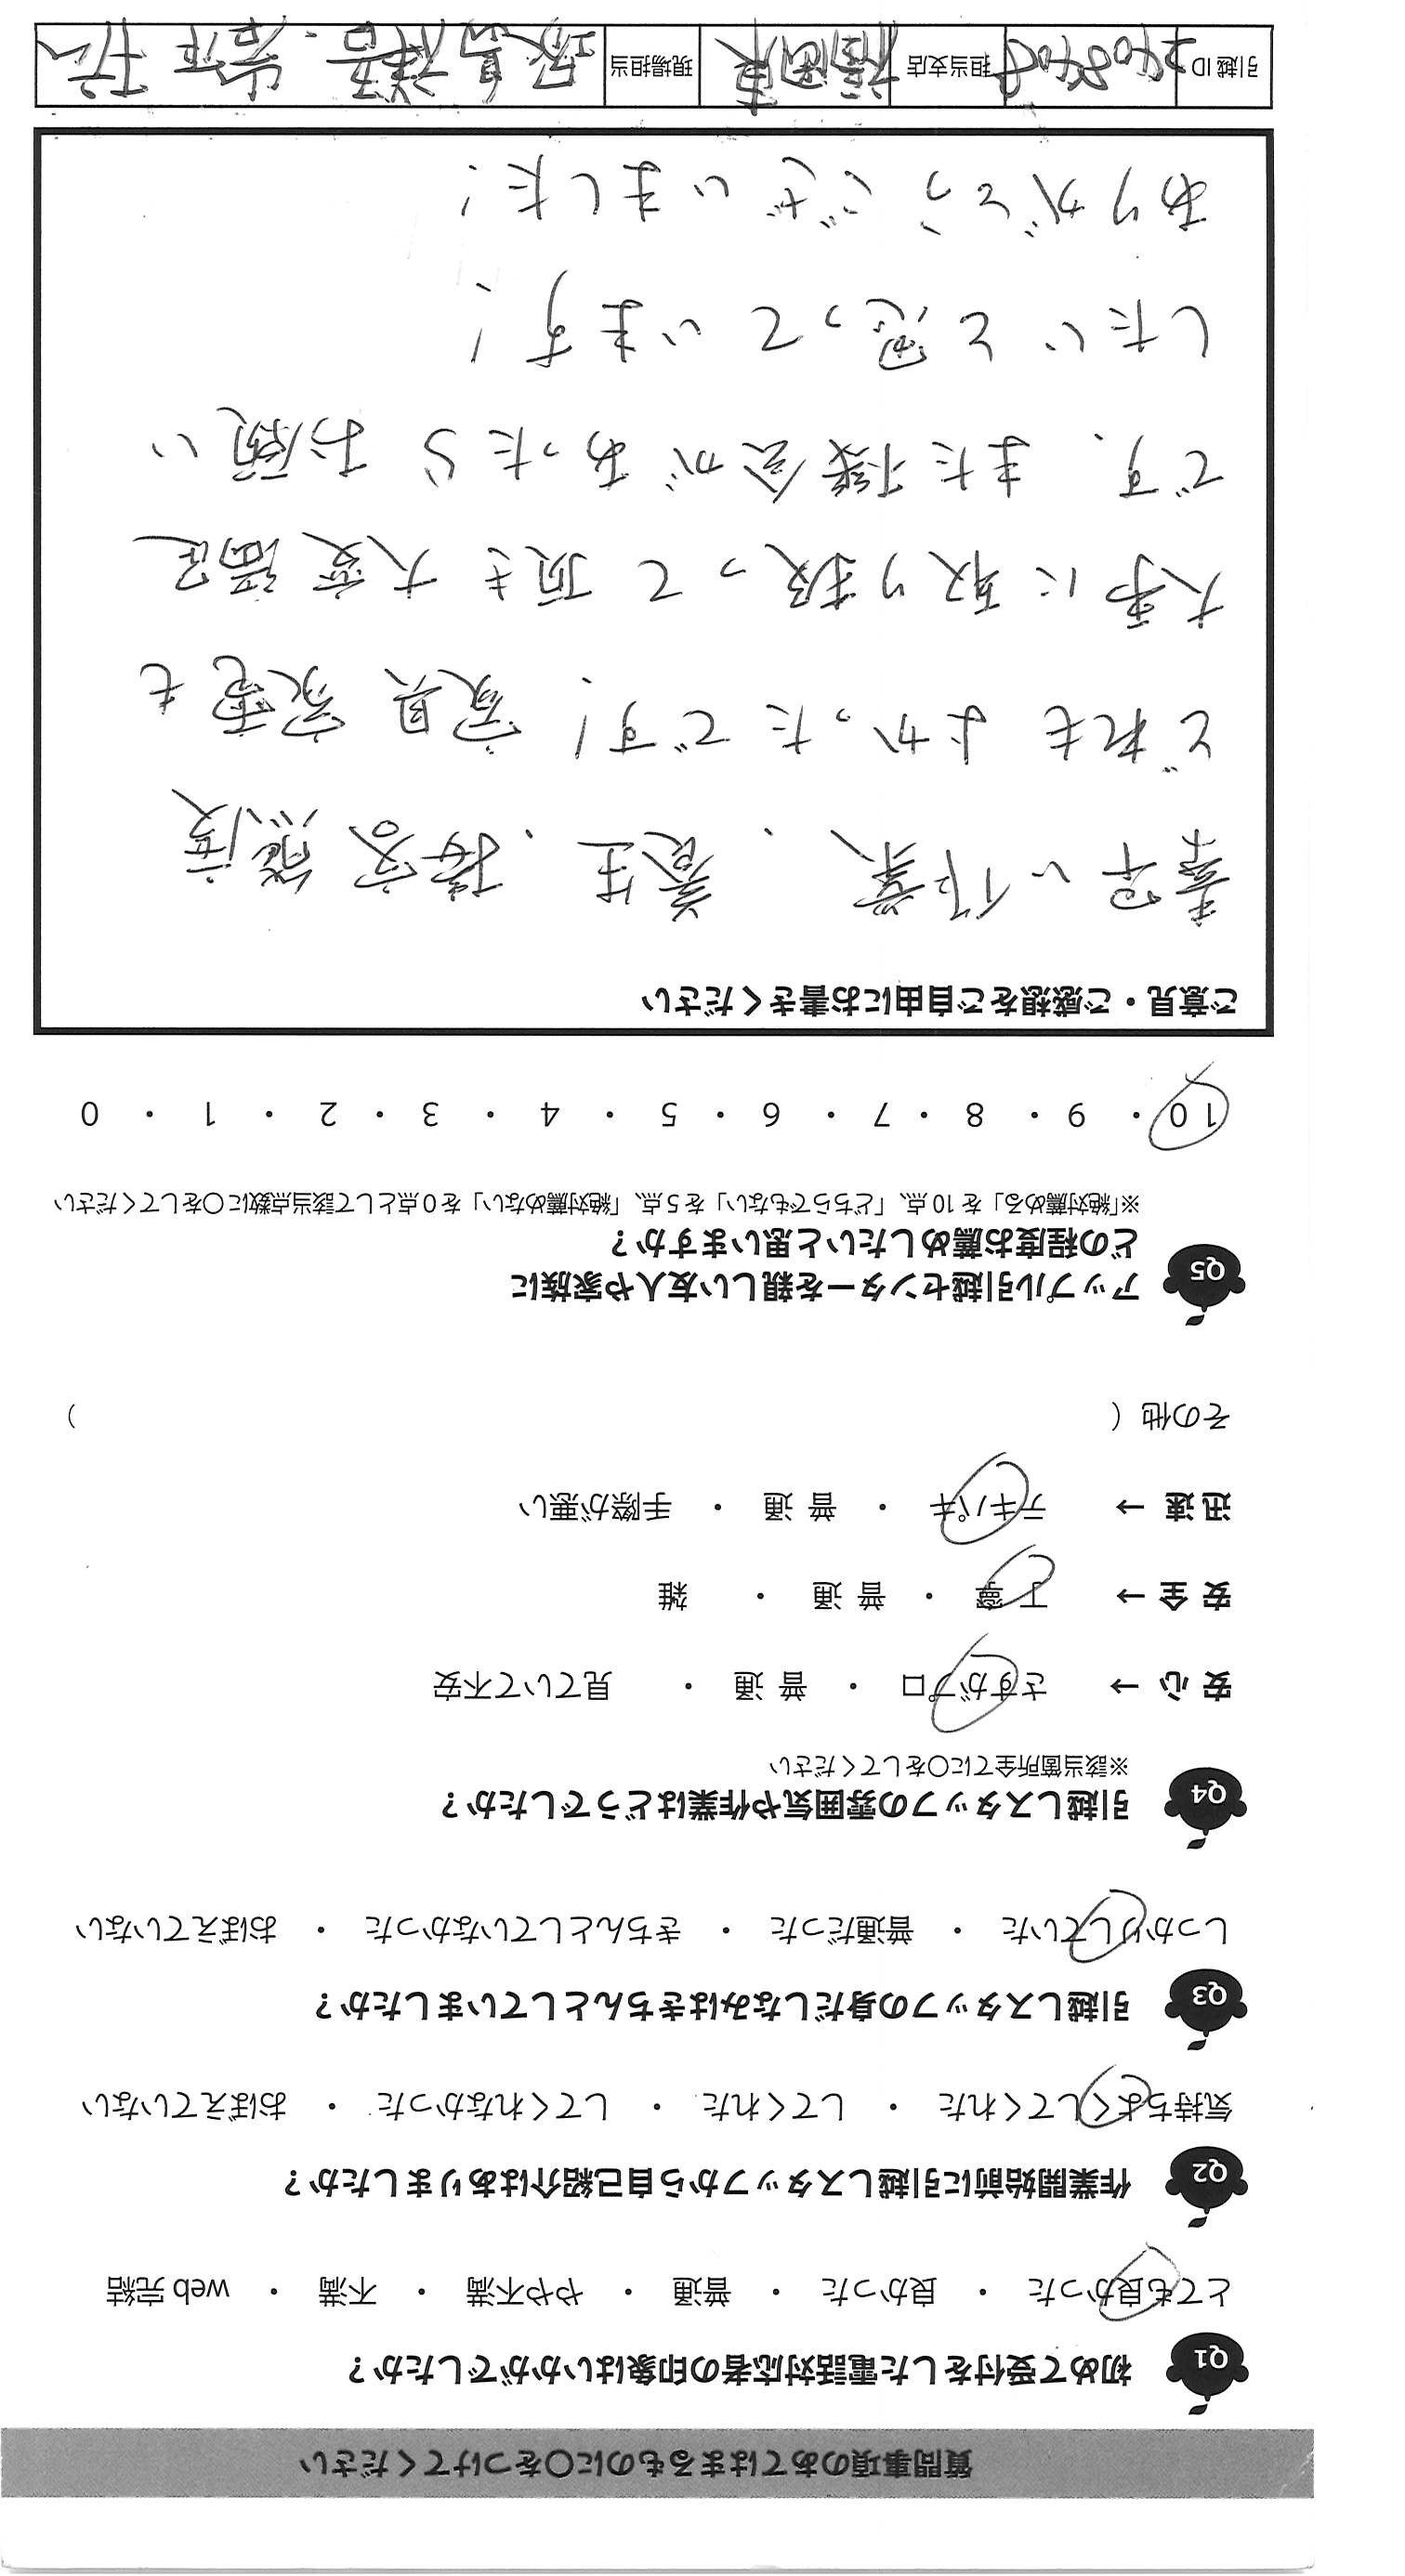 質問事項のあてはまるものに○をつけてください
Q1 初めて受付をした電話対応者の印象はいかがでしたか？
とても良かった ・ 良かった ・ 普通 ・ やや不満 ・ 不満 ・ web 完結
Q2 作業開始前に引越しスタッフから自己紹介はありましたか？
気持ちよくしてくれた ・ してくれた ・ してくれなかった ・ おぼえていない
Q3 引越しスタッフの身だしなみはきちんとしていましたか？
しっかりしていた ・ 普通だった ・ きちんとしていなかった ・ おぼえていない
Q4 引越しスタッフの雰囲気や作業はどうでしたか？
※該当箇所全てに○をしてください
安 心 → さすがプロ ・ 普 通 ・ 見ていて不安
安 全 → 丁 寧 ・ 普 通 ・ 雑
迅 速 → テキパキ ・ 普 通 ・ 手際が悪い
その他（ ）
Q5 アップル引越センターを親しい友人や家族に
どの程度お薦めしたいと思いますか？
※「絶対薦める」を 10 点、「どちらでもない」を 5 点、「絶対薦めない」を 0 点として該当点数に○をしてください
10 ・ 9 ・ 8 ・ 7 ・ 6 ・ 5 ・ 4 ・ 3 ・ 2 ・ 1 ・ 0
ご意見・ご感想をご自由にお書きください
素早い作業、養生、接客態度
どれもよかったです！家具家電も
大事に取り扱って頂き大変満足
です。また機会があったらお願い
したいと思っています！
ありがとうございました！
引越 ID 2408408 担当支店 福岡東 現場担当